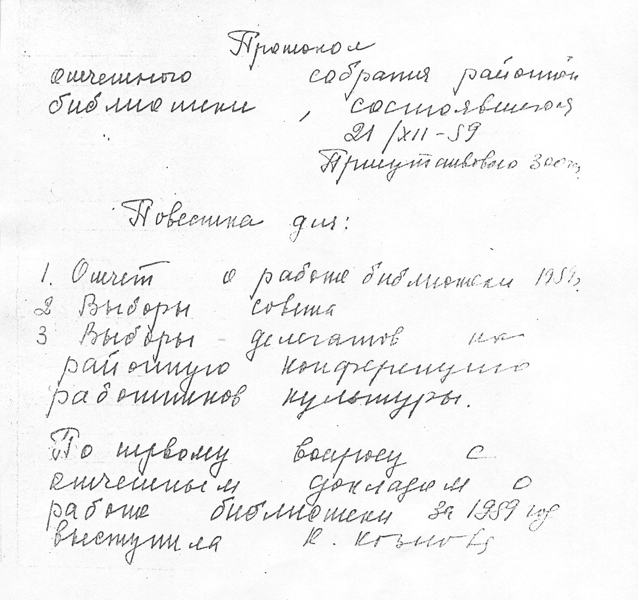 Протокол
отчетного собрания районной
библиотеки, состоявшегося
21/XII-59
Присутствовало
Повестка дня:
1. Отчет о работе библиотеки 1959г.
2 Выборы совета
3 Выборы делегатов на
районную конференцию
работников культуры.
По первому вопросу с
отчетным докладом о
работе библиотеки за 1959 год
выступила К.